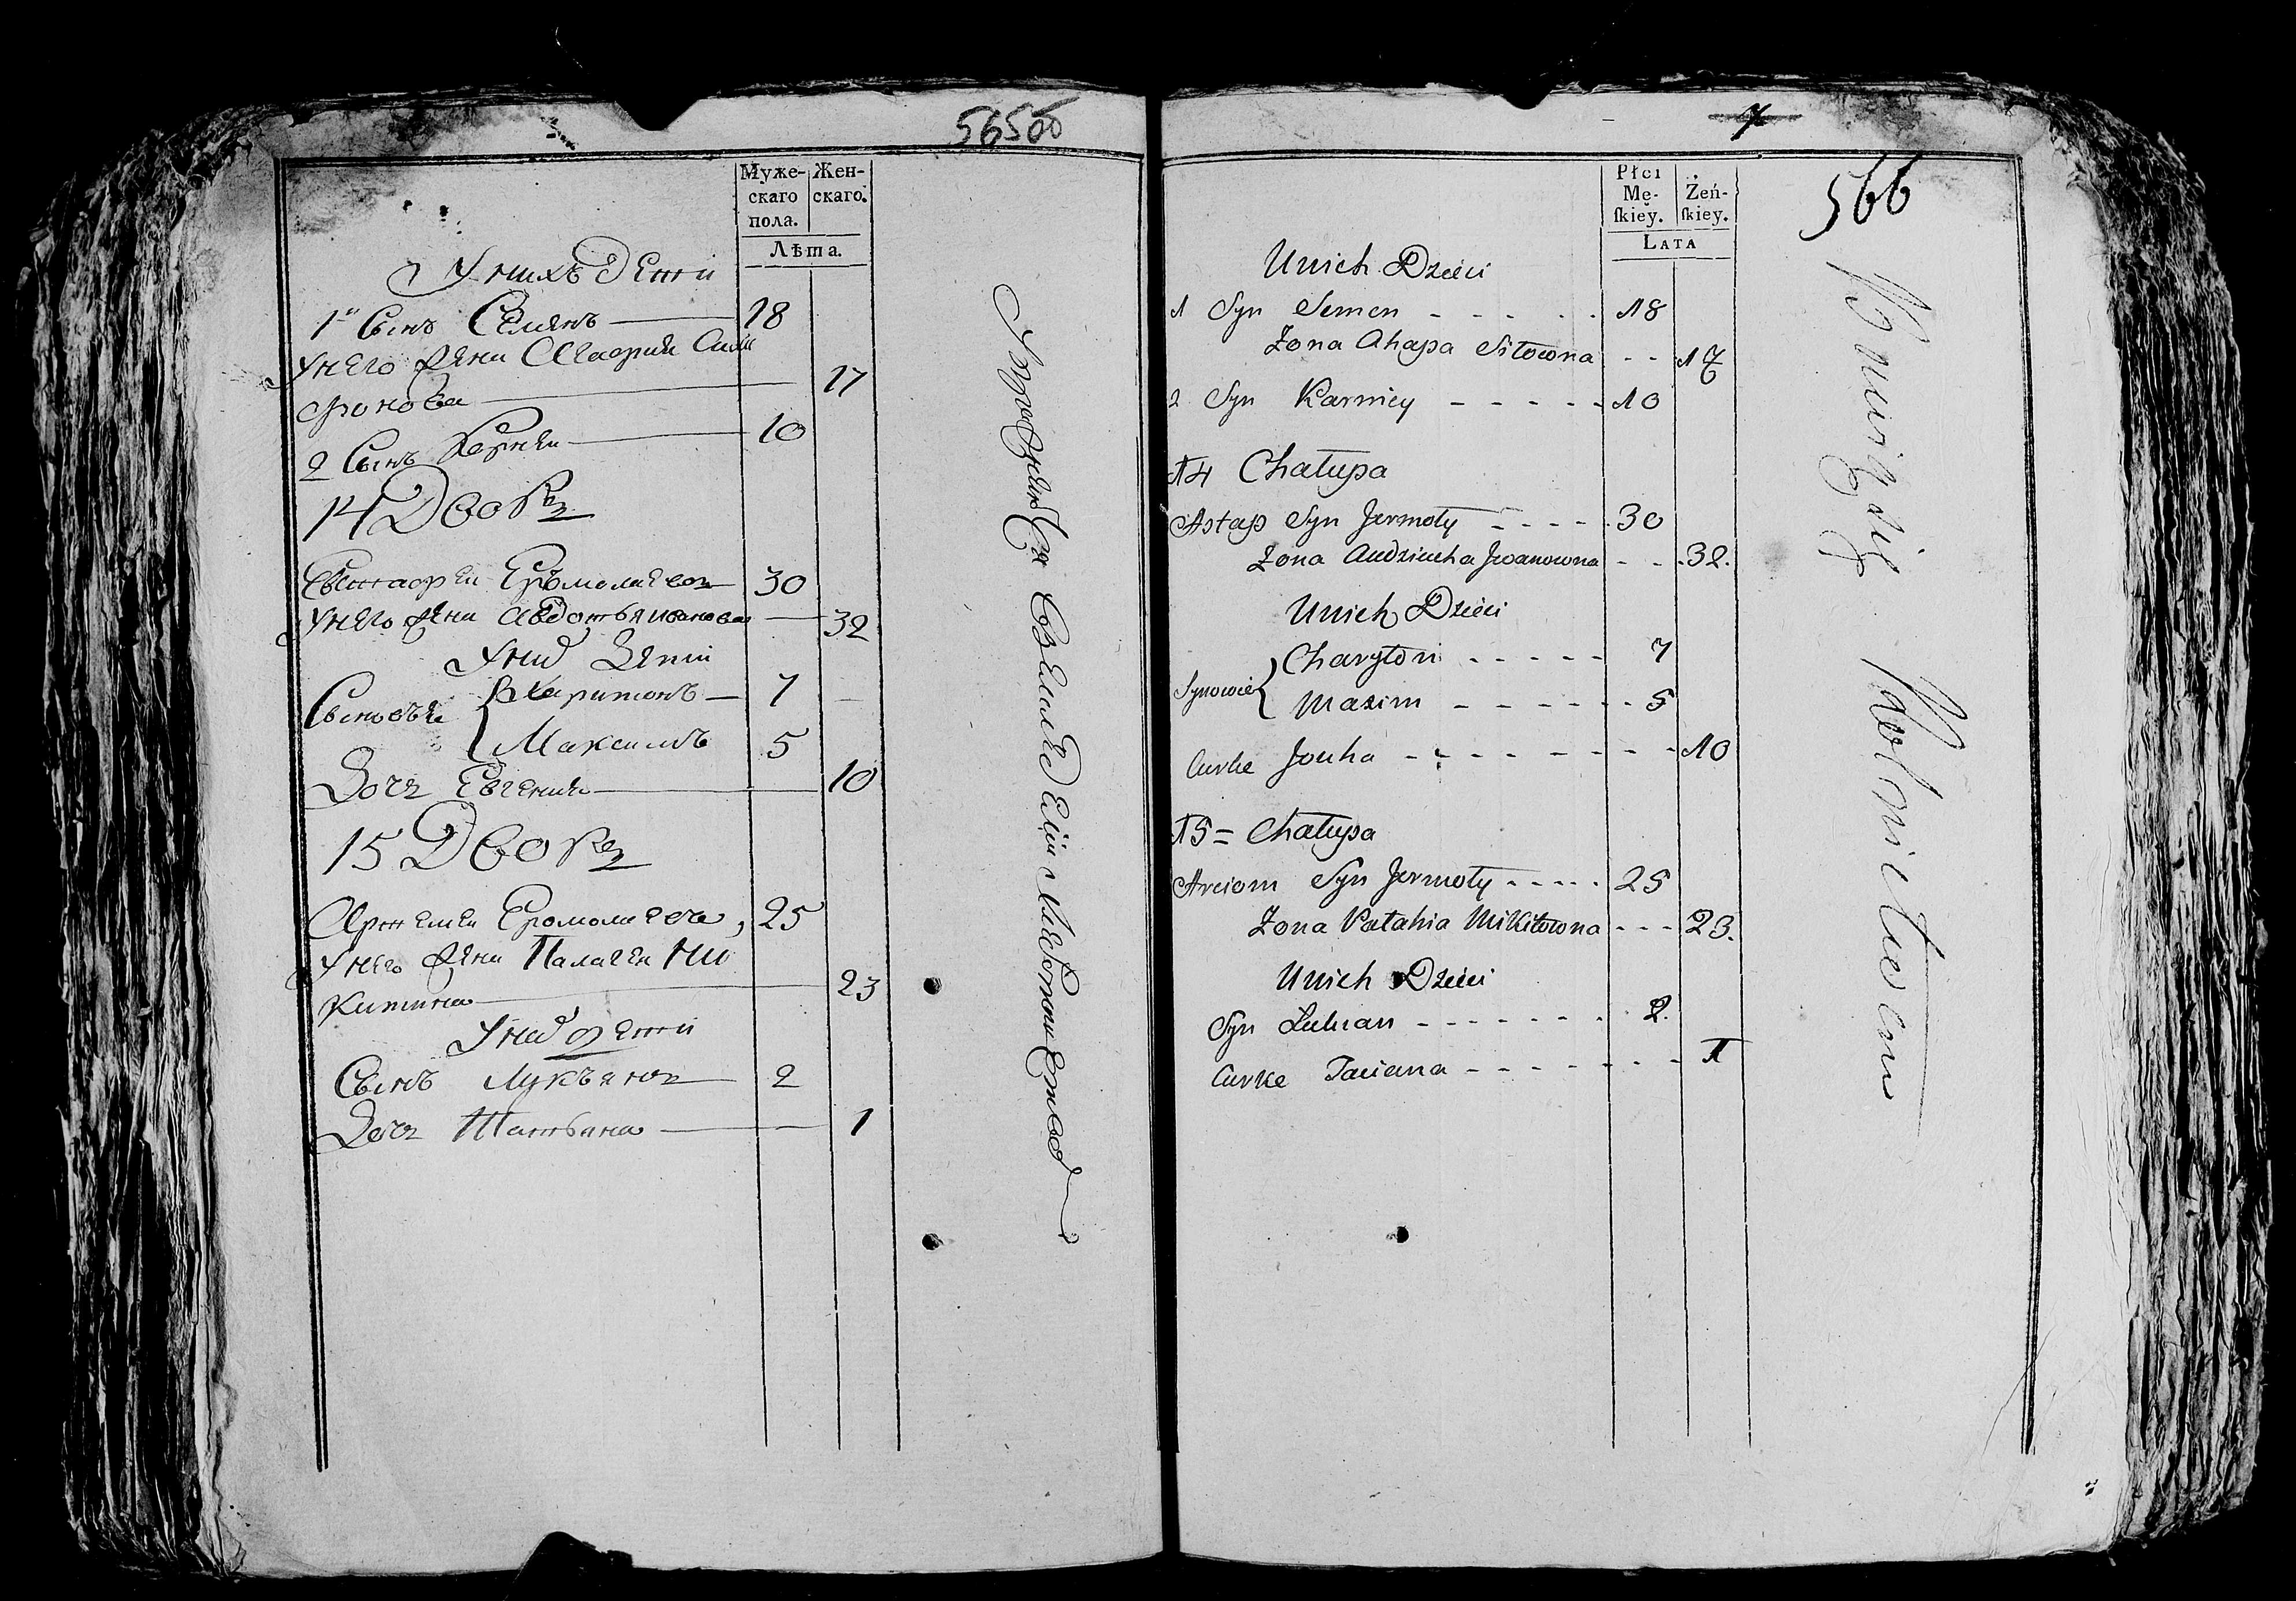 565об
Муже-
скаго
пола.
Жен-
скаго.
Лѣта.
Унихъ дети
1й Сынъ Семенъ 18
унего жена Агафия Сили
фонова 17
2 Сынъ Корней 10
14 Дворъ
Евстафей Ермолаевъ 30
унего жена Авдотья иванова 32
Унихъ дети
Сыновья Харитонъ 7
Максимъ 5
Дочь Евгения 10
15 Дворъ
Артемей Ермолаевъ 25
унего жена Палагея Ни
китина 23
Унихъ дети
Сынъ Лукъянъ 2
Дочь Татьяна 1
7
566
Płci
Mę-
ſkiey.
Żeń-
ſkiey.
LATA
Unich Dzieci
1 Syn Semen 18
Żona Ahapa Siłowna 17
2 Syn Karniey 10
14 Chałupa
Astap Syn Jermoły 30
Żona Audziucha Jwanowna 32.
Unich Dzieci
Synowie Charyton 7
Maxim 5
Curke Jouha 10
15 = Chałupa
Arciom Syn Jermoły 25
Żona Pałahia Mikitowna 23.
Unich Dzieci
Syn Łukian 2.
Curke Taciana 1